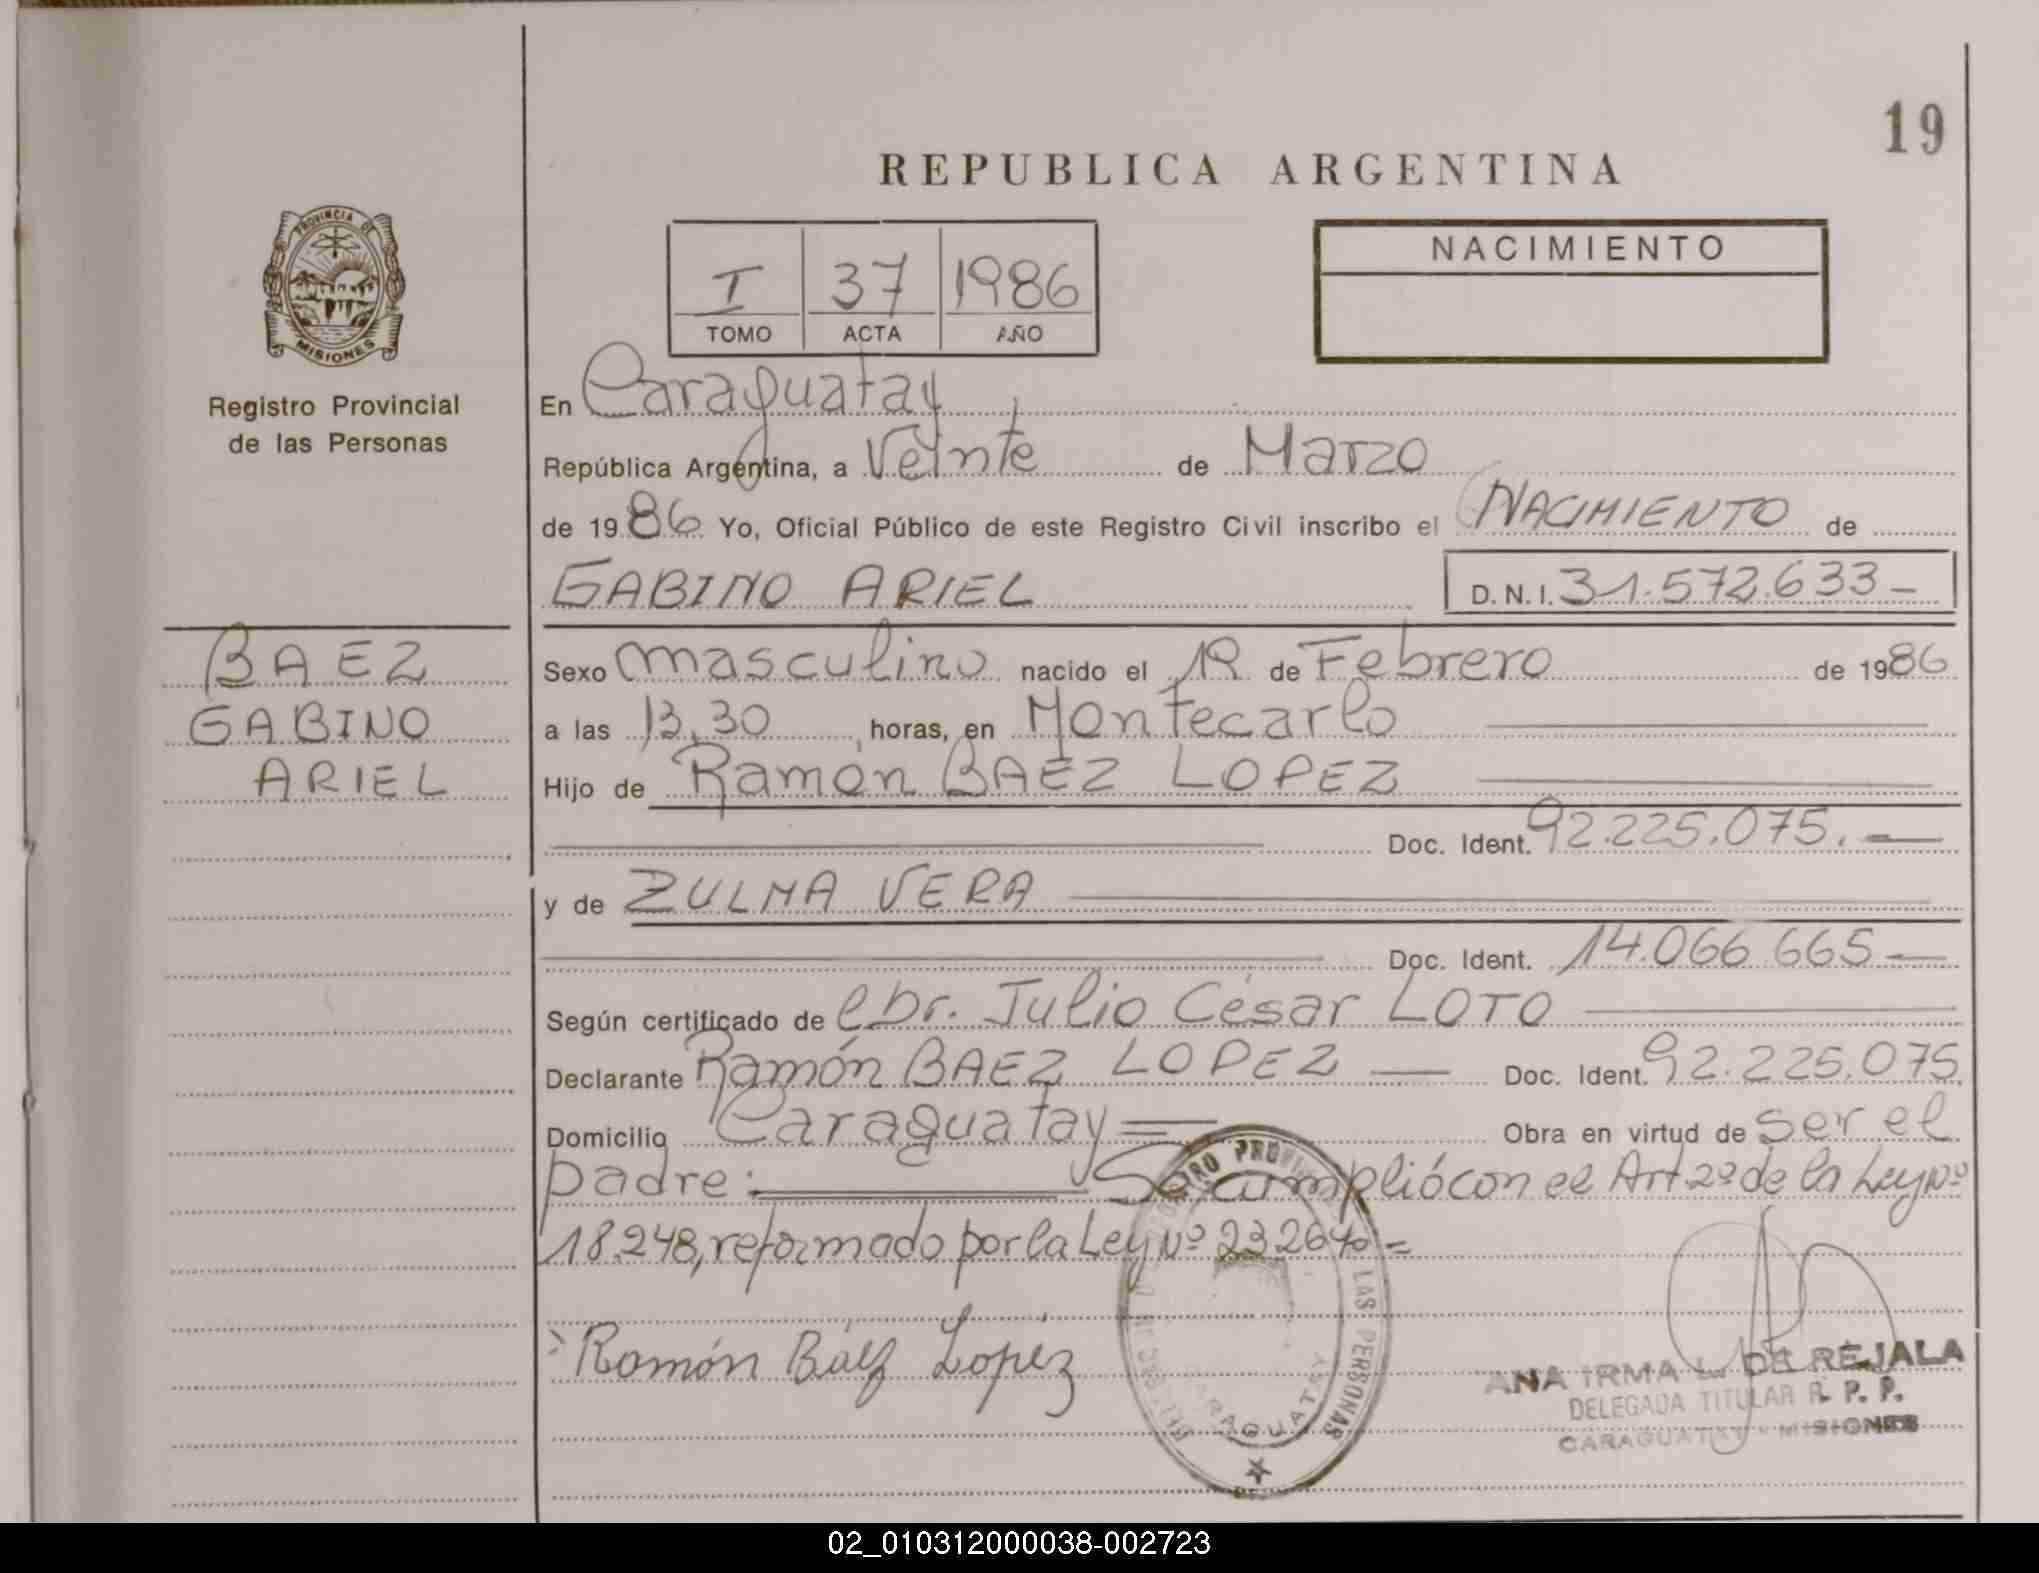 19
REPUBLICA ARGENTINA
PROVINCIA DE
MISIONES
Registro Provincial
de las Personas
I 37 1986
TOMO ACTA AÑO
NACIMIENTO
En Caraguatay
República Argentina, a Veinte de Marzo
de 1986 Yo, Oficial Público de este Registro Civil inscribo el NACIMIENTO de
GABINO ARIEL D.N.I. 31.572.633-
BAEZ
GABINO
ARIEL
Sexo masculino nacido el 19 de Febrero de 1986
a las 13,30 horas, en Montecarlo
Hijo de Ramón BAEZ LOPEZ
Doc. Ident. 92.225.075.-
y de ZULMA VERA
Doc. Ident. 14.066.665-
Según certificado de Dr. Julio César LOTO
Declarante Ramón BAEZ LOPEZ Doc. Ident. 92.225.075
Domicilio Caraguatay= Obra en virtud de ser el
padre: Se cumplió con el Art 2º de la Ley Nº
18.248, reformado por la Ley Nº 23.264=
Ramón Báez Lopéz
LAS PERSONAS
CARAGUATAY
ANA IRMA L. DE REJALA
DELEGADA TITULAR R. P. P.
CARAGUATAY - MISIONES
02_010312000038-002723